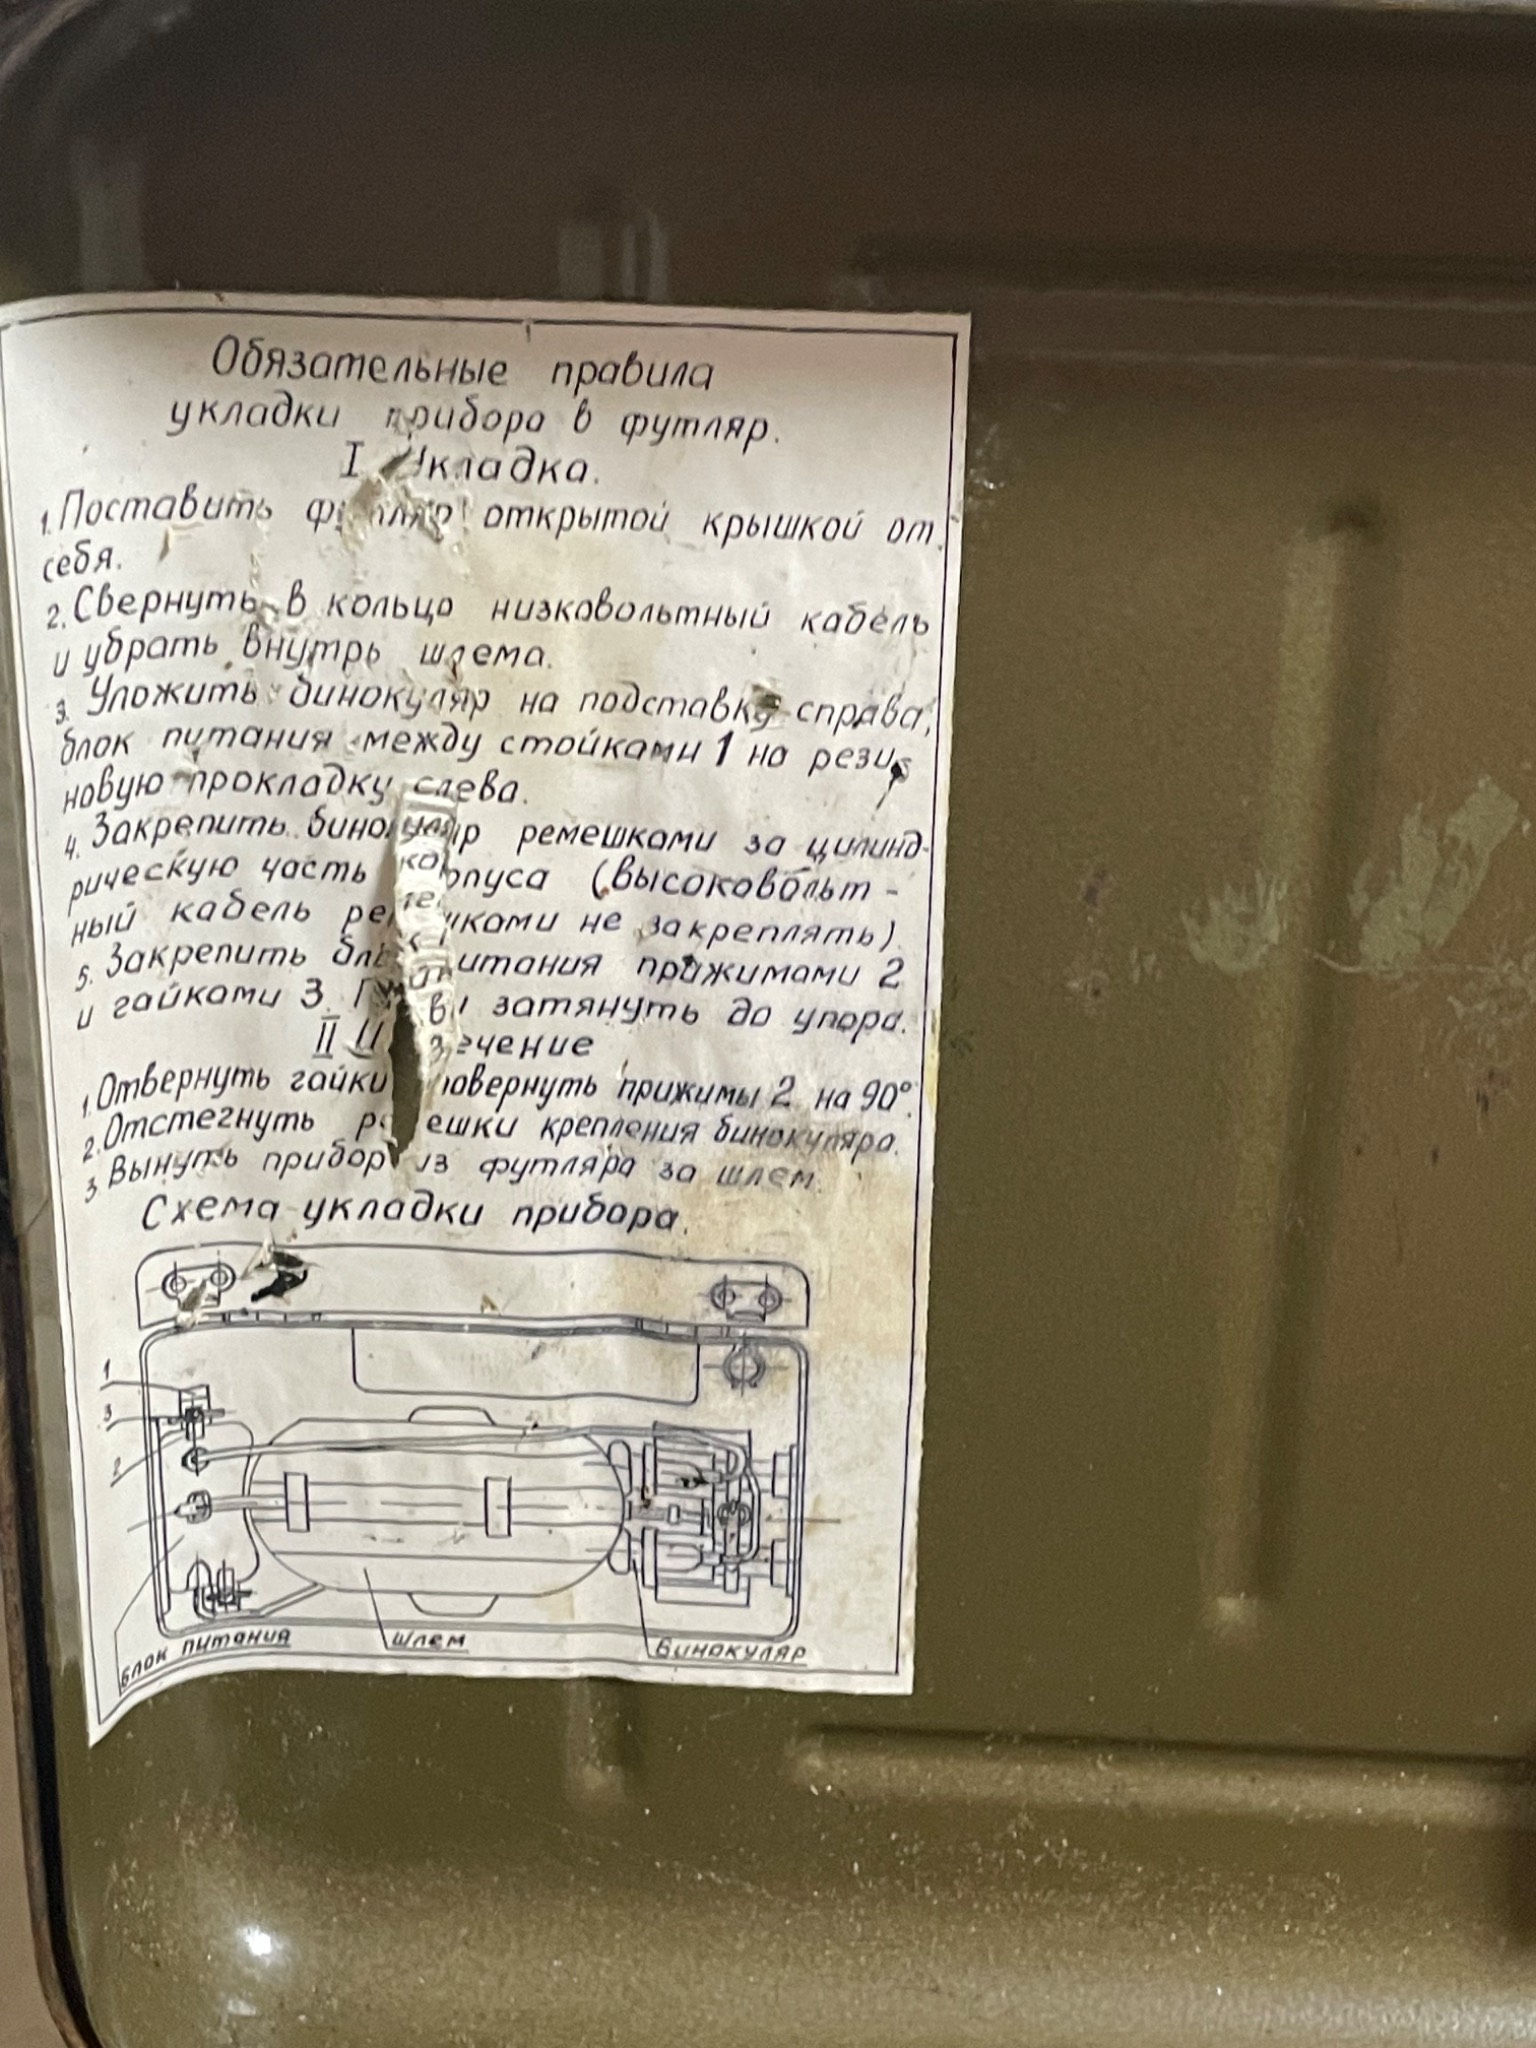 Обязательные правила
укладки прибора в футляр.
I Укладка.
1. Поставить футляр открытой крышкой от
себя.
2. Свернуть в кольцо низковольтный кабель
и убрать внутрь шлема.
3. Уложить бинокуляр на подставку справа,
блок питания между стойками 1 на рези-
новую прокладку слева.
4. Закрепить бинокуляр ремешками за цилинд-
рическую часть корпуса (высоковольт-
ный кабель ремешками не закреплять).
5. Закрепить блок питания прижимами 2
и гайками 3. затянуть до упора.
II Извлечение
1. Отвернуть гайки повернуть прижимы 2 на 90°.
2. Отстегнуть ремешки крепления бинокуляра.
3. Вынуть прибор из футляра за шлем.
Схема укладки прибора.
1
3
2
блок питания шлем бинокуляр